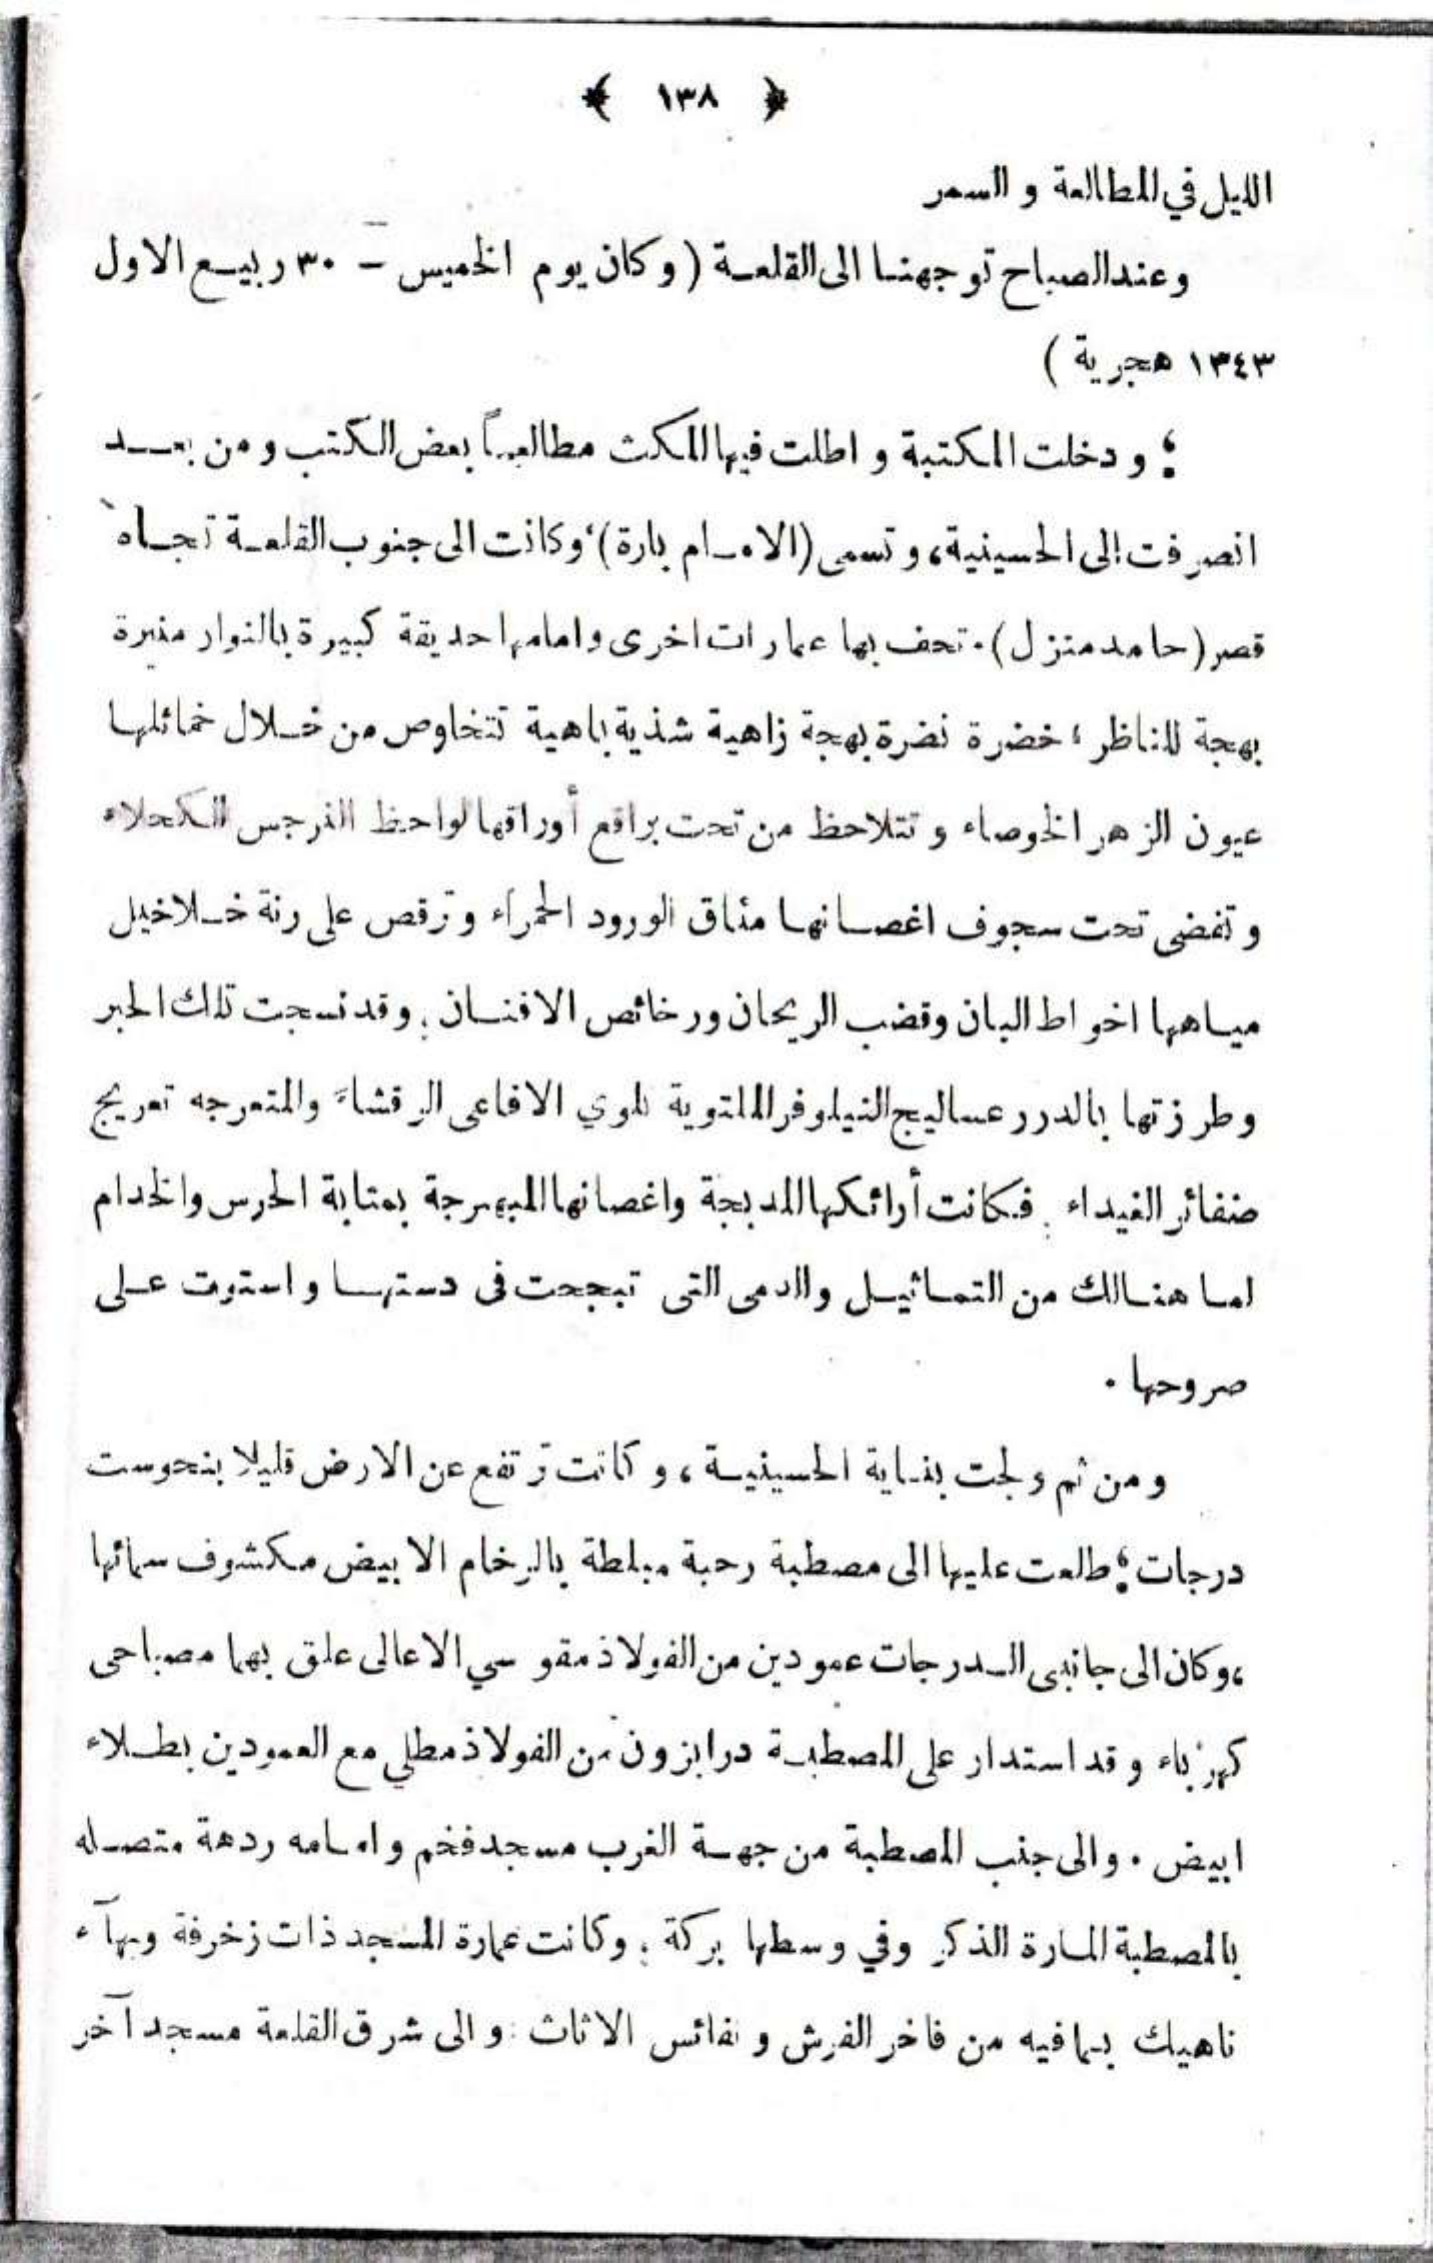 ﴿ ١٣٨ ﴾
الليل في المطالعة و السمر
وعند الصباح توجهنا الى القلعة ( وكان يوم الخميس – ٣٠ ربيع الاول
١٣٤٣ هجرية )
؛ و دخلت المكتبة و اطلت فيها المكث مطالعاً بعض الكتب و من بعد
انصرفت إلى الحسينية، و تسمى (الامام بارة)؛ وكانت الى جنوب القلعة تجاه
قصر (حامد منزل). تحف بها عمارات اخرى وامامها حديقة كبيرة بالنوار منيرة
بهجة للناظر ؛ خضرة نضرة بهجة زاهية شذية باهية تتخاوص من خلال خمائلها
عيون الزهر الخوصاء و تتلاحظ من تحت براقع أوراقها لواحظ النرجس الكحلاء
و تغضى تحت سجوف اغصانها مئاق الورود الحمراء و ترقص على رنة خلاخيل
مياهها اخواط البان وقضب الريحان ورخائص الافنان . وقد نسجت تلك الحبر
وطرزتها بالدرر عساليج النيلوفر الملتوية تلوي الافاعى الرقشاء والمتعرجه تعريج
ضفائر الغيداء . فكانت أرائكها المدبجة واغصانها المبهرجة بمثابة الحرس والخدام
لما هنالك من التماثيل والدمى التى تبجحت فى دستها و استوت على
صروحها .
و من ثم ولجت بناية الحسينية ، و كانت ترتفع عن الارض قليلا بنحو ست
درجات ؛ طلعت عليها الى مصطبة رحبة مبلطة بالرخام الابيض مكشوف سمائها
،وكان الى جانبى الدرجات عمودين من الفولاذ مقوسي الاعالى علق بهما مصباحى
كهرباء و قد استدار على المصطبة درابزون من الفولاذ مطلي مع العمودين بطلاء
ابيض . والى جنب المصطبة من جهة الغرب مسجد فخم و امامه ردهة متصله
بالمصطبة المارة الذكر وفي وسطها بركة ؛ وكانت عمارة المسجد ذات زخرفة وبهآء
ناهيك بما فيه من فاخر الفرش و نفائس الاثاث : و الى شرق القلعة مسجد آخر